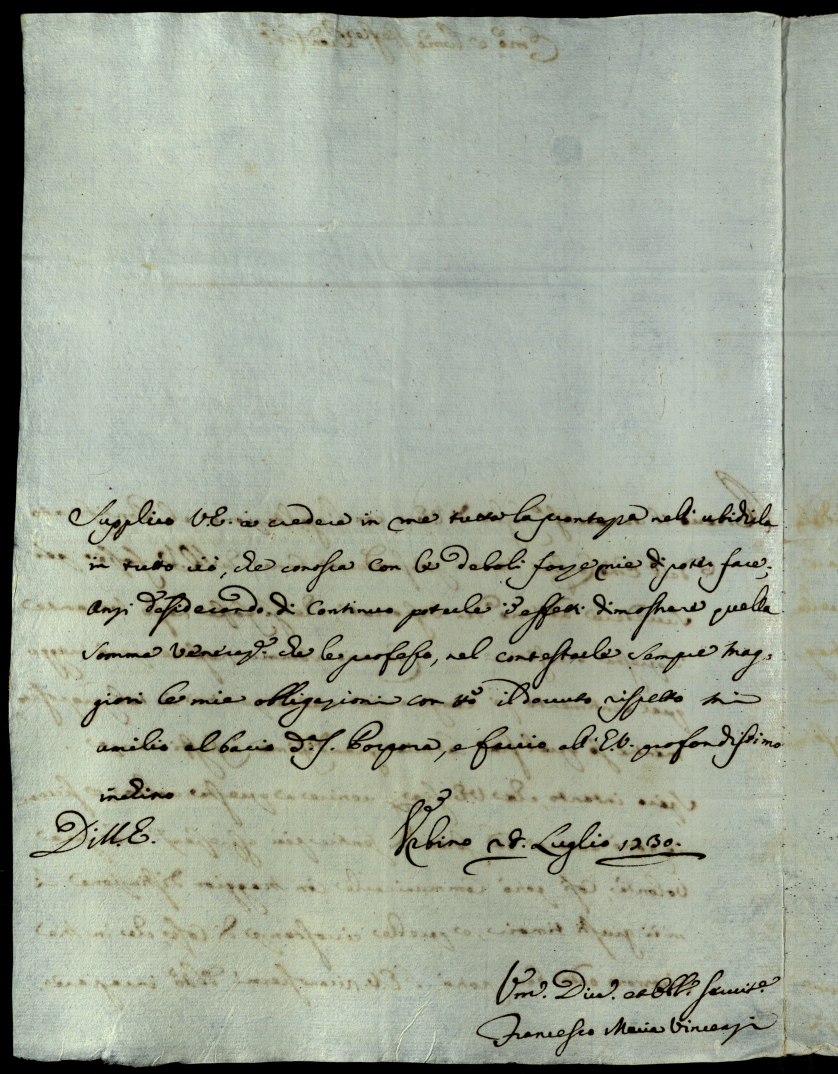 Supplico V.E. a credere in me tutta la prontezza nell' ubidirla
in tutto ciò, che conosca con le deboli forze mie di poter fare;
Anzi desiderando di continuo poterle in effetti dimostrare quella
somma veneraz.e che le professo, nel contestarle sempre mag-
giori le mie obligazioni con tto il dovuto rispetto mi
umilio al bacio d.a S. Porpora, e faccio all' E.V. profondissimo
inchino
Di V.E. Urbino 28. Luglio 1730.
Um.o Div.o et Obb. Servit.e
Francesco Maria Vincenzi